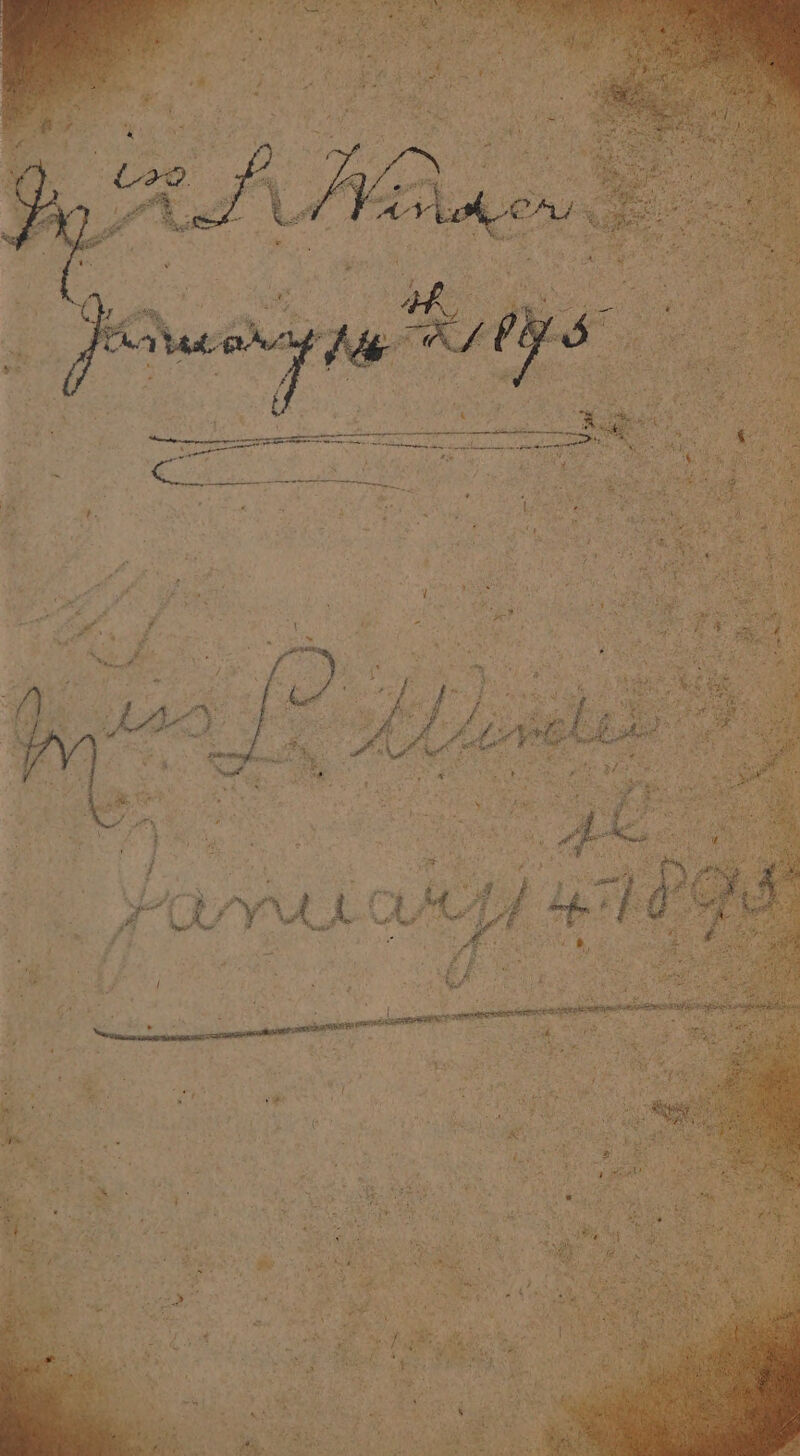 Miss L Winder
January 14th 1895
Miss L Winder
January 14th 1895